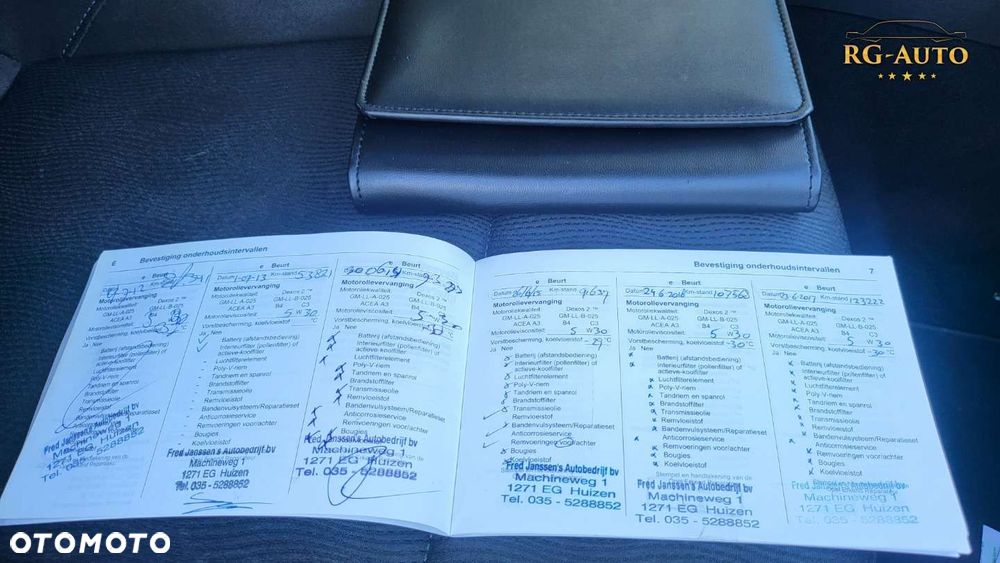 RG-AUTO
E Bevestiging onderhoudsintervallen
e Beurt
Motorolievervanging
Motoroliekwaliteit: Dexos 2 ™
GM-LL-A-025 GM-LL-B-025
ACEA A3 B4 C3
Motorolieviscositeit:
Vorstbescherming, koelvloeistof
Ja Nee
Batterij (afstandsbediening)
Interieurfilter (pollenfilter) of
actieve-koolfilter
Luchtfilterelement
Poly-V-riem
Tandriem en spanrol
Brandstoffilter
Transmissieolie
Remvloeistof
Bandenvulsysteem/Reparatieset
Anticorrosieservice
Fred Janssen's Autobedrijf bv
Machineweg 1
1271 EG Huizen
Tel. 035 - 5288852
e Beurt
Datum 1-07-13 Km-stand 53821
Motorolievervanging
Motoroliekwaliteit: Dexos 2 ™
GM-LL-A-025 GM-LL-B-025
ACEA A3 B4 C3
Motorolieviscositeit: 5 W 30
Vorstbescherming, koelvloeistof °C
Ja Nee
Batterij (afstandsbediening)
Interieurfilter (pollenfilter) of
actieve-koolfilter
Luchtfilterelement
Poly-V-riem
Tandriem en spanrol
Brandstoffilter
Transmissieolie
Remvloeistof
Bandenvulsysteem/Reparatieset
Anticorrosieservice
Bougies
Koelvloeistof
Fred Janssen's Autobedrijf bv
Machineweg 1
1271 EG Huizen
Tel. 035 - 5288852
e Beurt
Motorolievervanging
Motoroliekwaliteit: Dexos 2 ™
GM-LL-A-025 GM-LL-B-025
ACEA A3 B4 C3
Motorolieviscositeit: 5 W 30
Vorstbescherming, koelvloeistof
Ja Nee
Batterij (afstandsbediening)
Interieurfilter (pollenfilter) of
actieve-koolfilter
Luchtfilterelement
Poly-V-riem
Tandriem en spanrol
Brandstoffilter
Transmissieolie
Remvloeistof
Bandenvulsysteem/Reparatieset
Anticorrosieservice
Bougies
Koelvloeistof
Fred Janssen's Autobedrijf bv
Machineweg 1
1271 EG Huizen
Tel. 035 - 5288852
Bevestiging onderhoudsintervallen 7
e Beurt
Datum Km-stand 91637
Motorolievervanging
Motoroliekwaliteit: Dexos 2 ™
GM-LL-A-025 GM-LL-B-025
ACEA A3 B4 C3
Motorolieviscositeit: 5 W 30
Vorstbescherming, koelvloeistof -29 °C
Ja Nee
Batterij (afstandsbediening)
Interieurfilter (pollenfilter) of
actieve-koolfilter
Luchtfilterelement
Poly-V-riem
Tandriem en spanrol
Brandstoffilter
Transmissieolie
Remvloeistof
Bandenvulsysteem/Reparatieset
Anticorrosieservice
Remvoeringen voor/achter
Bougies
Koelvloeistof
Stempel en handtekening van de
Fred Janssen's Autobedrijf bv
Machineweg 1
1271 EG Huizen
Tel. 035 - 5288852
e Beurt
Datum 24 6 2016 Km-stand 107560
Motorolievervanging
Motoroliekwaliteit: Dexos 2 ™
GM-LL-A-025 GM-LL-B-025
ACEA A3 B4 C3
Motorolieviscositeit: 5 W 30
Vorstbescherming, koelvloeistof -30 °C
Ja Nee
Batterij (afstandsbediening)
Interieurfilter (pollenfilter) of
actieve-koolfilter
Luchtfilterelement
Poly-V-riem
Tandriem en spanrol
Brandstoffilter
Transmissieolie
Remvloeistof
Bandenvulsysteem/Reparatieset
Anticorrosieservice
Remvoeringen voor/achter
Bougies
Koelvloeistof
Fred Janssen's Autobedrijf bv
Machineweg 1
1271 EG Huizen
Tel. 035 - 5288852
e Beurt
Km-stand 123222
Motorolievervanging
Motoroliekwaliteit: Dexos 2 ™
GM-LL-A-025 GM-LL-B-025
ACEA A3 B4 C3
Motorolieviscositeit: 5 W 30
Vorstbescherming, koelvloeistof -30 °C
Ja Nee
Batterij (afstandsbediening)
Interieurfilter (pollenfilter) of
actieve-koolfilter
Luchtfilterelement
Poly-V-riem
Tandriem en spanrol
Brandstoffilter
Transmissieolie
Remvloeistof
Bandenvulsysteem/Reparatieset
Anticorrosieservice
Remvoeringen voor/achter
Bougies
Koelvloeistof
Fred Janssen's Autobedrijf bv
Machineweg 1
1271 EG Huizen
Tel. 035 - 5288852
OTOMOTO